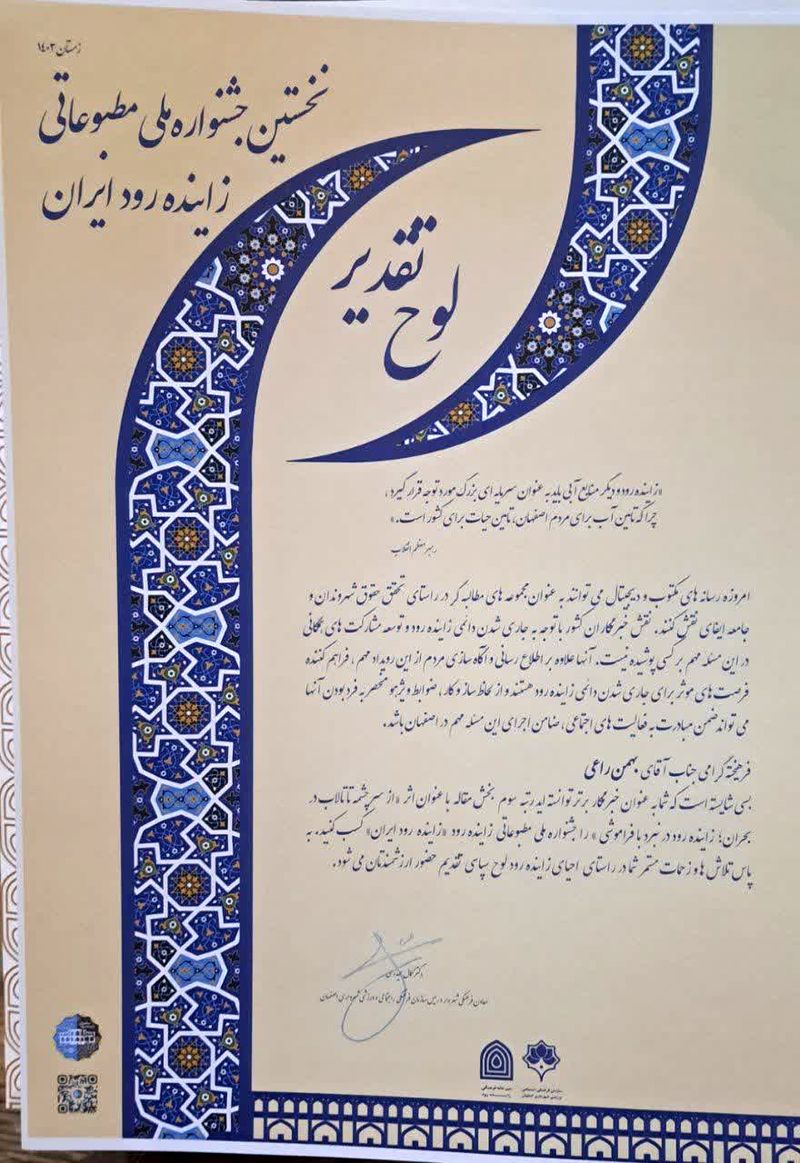 زمستان ۱۴۰۳
نخستین جشنواره ملی مطبوعاتی
زاینده رود ایران
لوح تقدیر
«زاینده رود و دیگر منابع آبی باید به عنوان سرمایه ای بزرگ مورد توجه قرار گیرد،
چرا که تامین آب برای مردم اصفهان، تامین حیات برای کشور است.»
رهبر معظم انقلاب
امروزه رسانه های مکتوب و دیجیتال می توانند به عنوان مجموعه های مطالبه گر در راستای تحقق حقوق شهروندان و
جامعه ایفای نقش کنند. نقش خبرنگاران کشور با توجه به جاری شدن دائمی زاینده رود و توسعه مشارکت های همگانی
در این مسئله مهم بر کسی پوشیده نیست. آنها علاوه بر اطلاع رسانی و آگاه سازی مردم از این رویداد مهم، فراهم کننده
فرصت های موثر برای جاری شدن دائمی زاینده رود هستند و از لحاظ ساز و کار، ضوابط ویژه و منحصر به فرد بودن آنها
می تواند ضمن مبادرت به فعالیت های اجتماعی، ضامن اجرای این مسئله مهم در اصفهان باشد.
فرهیخته گرامی جناب آقای بهمن راعی
بسی شایسته است که شما به عنوان خبرنگار برتر توانسته اید رتبه سوم بخش مقاله با عنوان اثر «از سرچشمه تا تالاب در
بحران؛ زاینده رود در نبرد با فراموشی» را جشنواره ملی مطبوعاتی زاینده رود «زاینده رود ایران» کسب کنید. به
پاس تلاش ها و زحمات مستمر شما در راستای احیای زاینده رود لوح سپاسی تقدیم حضور ارزشمندتان می شود.
دکتر
معاون فرهنگی شهردار و رییس سازمان فرهنگی اجتماعی و ورزشی شهرداری اصفهان
سازمان فرهنگی اجتماعی
ورزشی شهرداری اصفهان